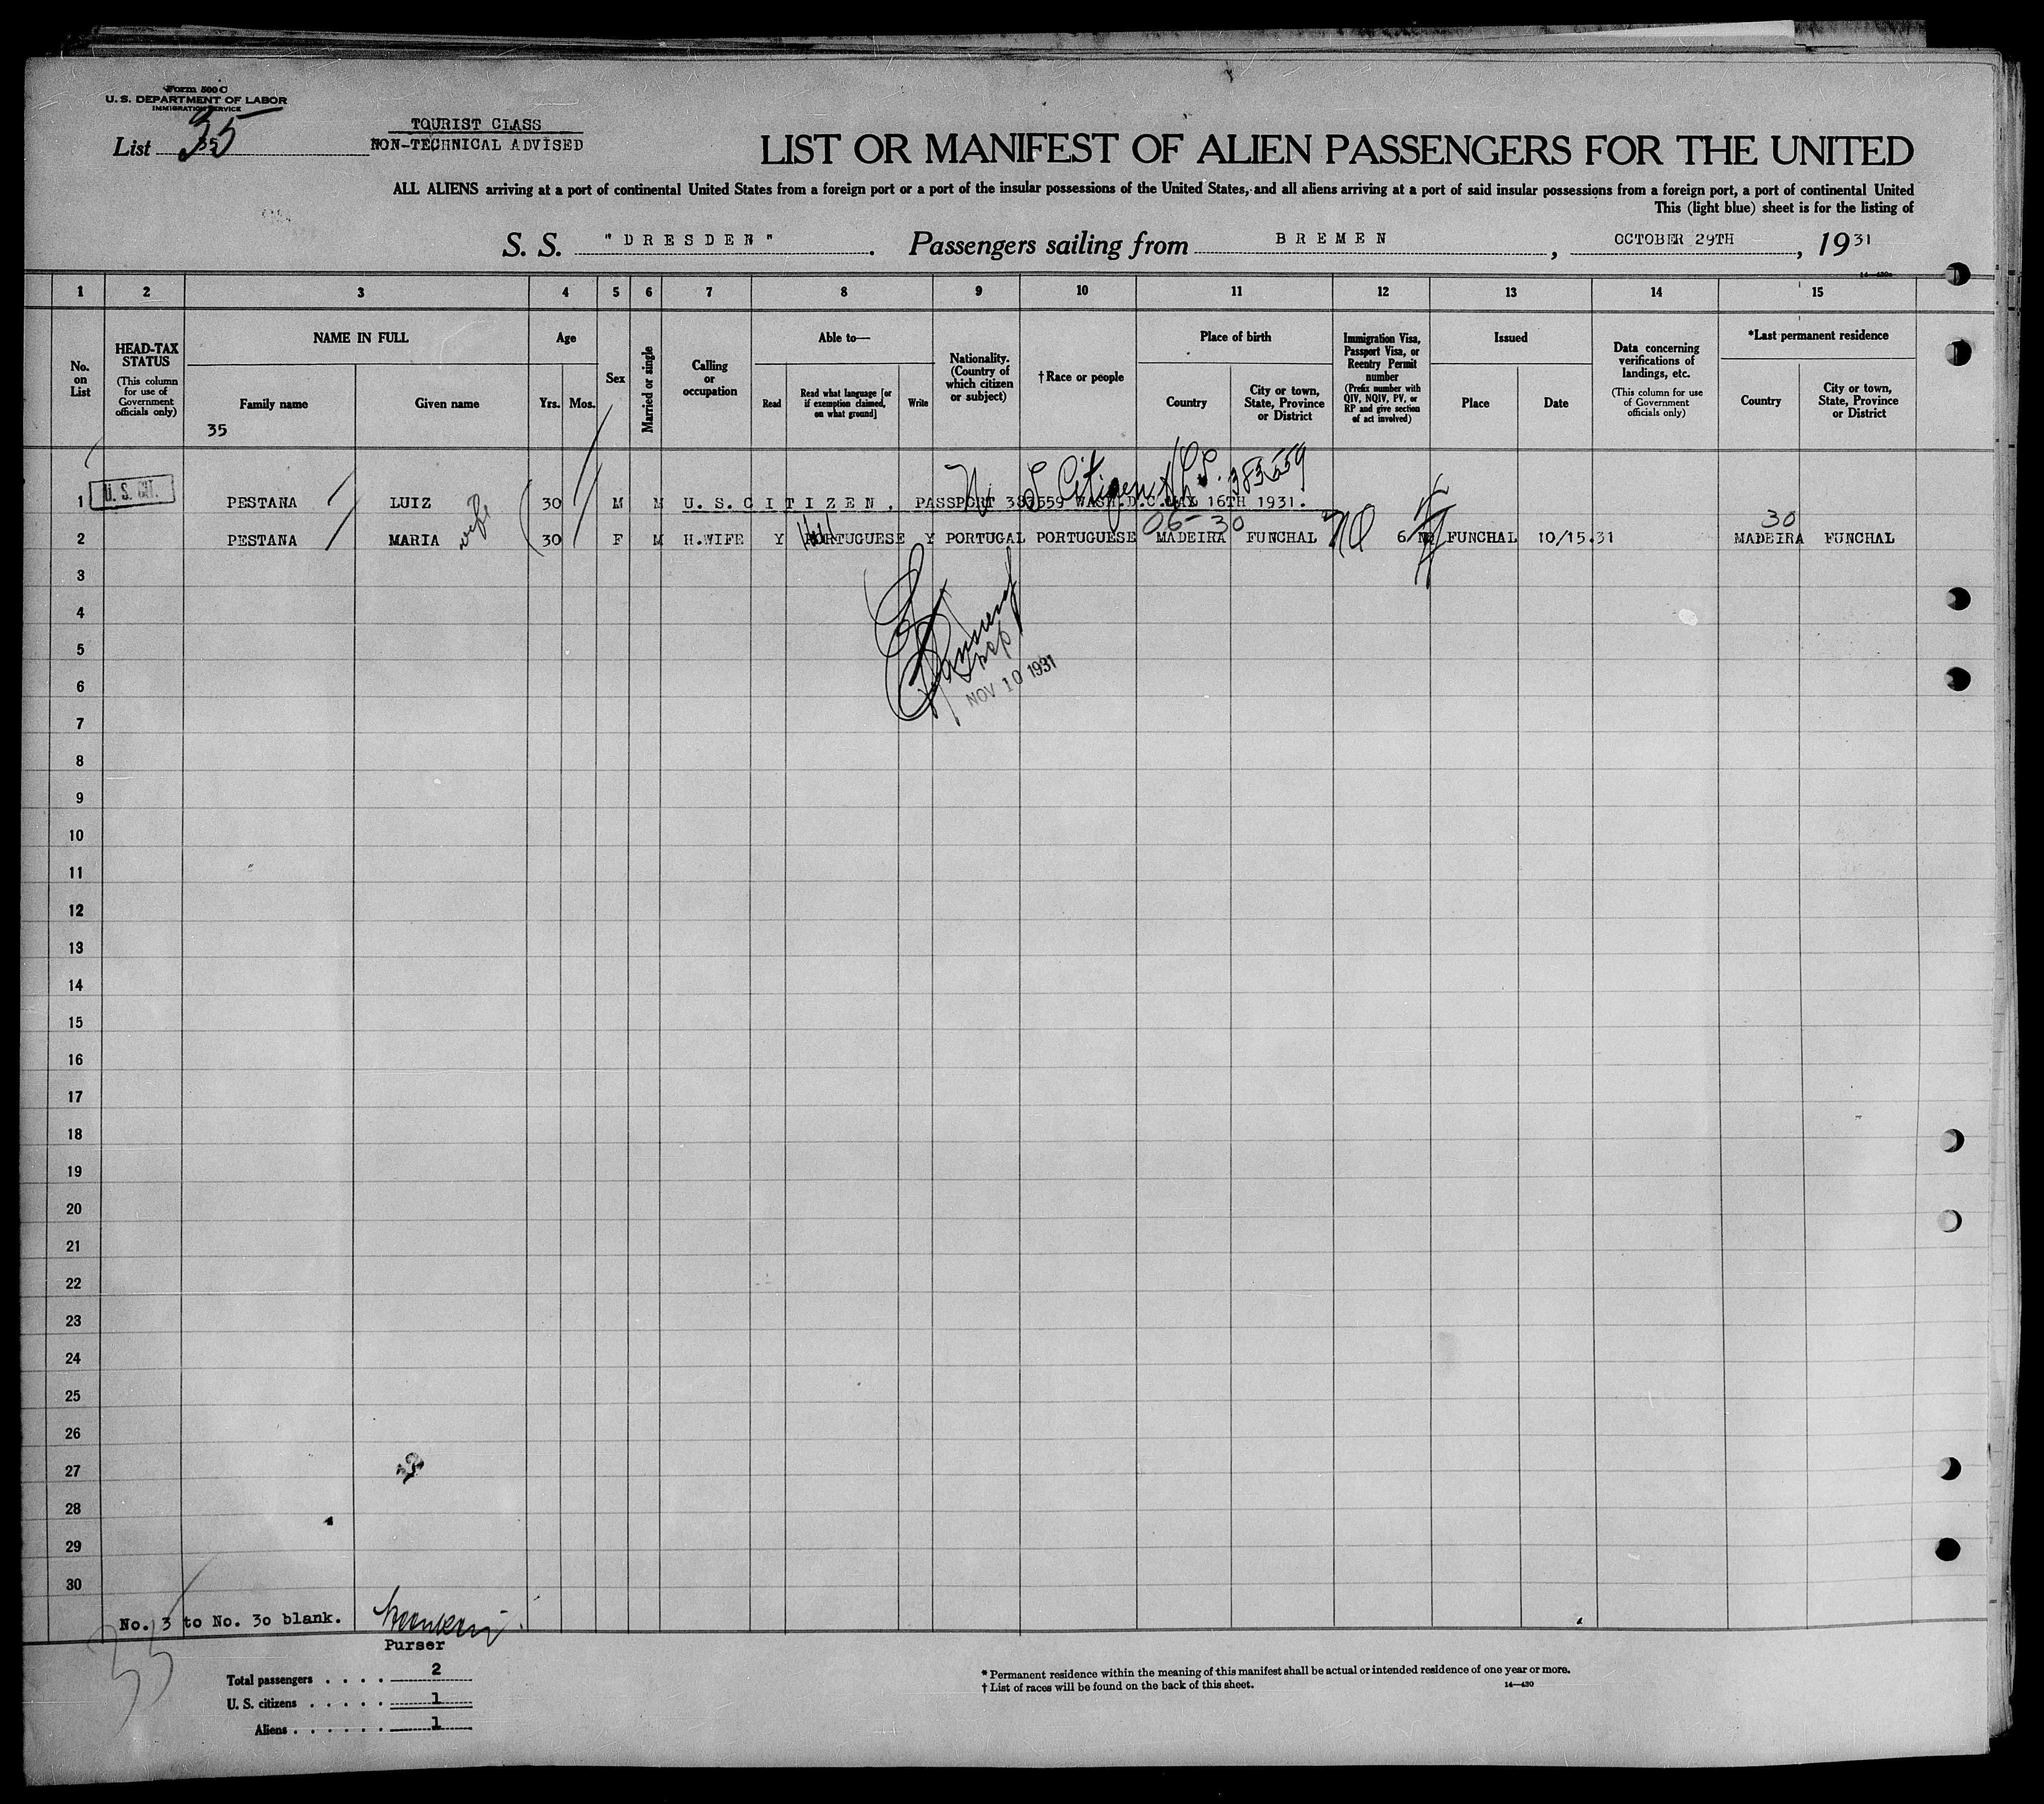 Form 500 C
U. S. DEPARTMENT OF LABOR
IMMIGRATION SERVICE
List 35
35
TOURIST CLASS
NON-TECHNICAL ADVISED
LIST OR MANIFEST OF ALIEN PASSENGERS FOR THE UNITED
ALL ALIENS arriving at a port of continental United States from a foreign port or a port of the insular possessions of the United States, and all aliens arriving at a port of said insular possessions from a foreign port, a port of continental United
This (light blue) sheet is for the listing of
S. S. "DRESDEN". Passengers sailing from BREMEN, OCTOBER 29TH, 1931
14—430a
1 2 3 4 5 6 7 8 9 10 11 12 13 14 15
No. on List
HEAD-TAX STATUS (This column for use of Government officials only)
NAME IN FULL
Family name
Given name
35
Age
Yrs. Mos.
Sex
Married or single
Calling or occupation
Able to—
Read
Read what language [or if exemption claimed, on what ground]
Write
Nationality. (Country of which citizen or subject)
† Race or people
Place of birth
Country
City or town, State, Province or District
Immigration Visa, Passport Visa, or Reentry Permit number (Prefix number with QIV, NQIV, PV, or RP and give section of act involved)
Issued
Place
Date
Data concerning verifications of landings, etc. (This column for use of Government officials only)
*Last permanent residence
Country
City or town, State, Province or District
U S Citizen 383559
1 U. S. CIT. PESTANA LUIZ 30 M M U.S. CITIZEN, PASSPORT 383559 WASH.D.C.MAY 16TH 1931.
wife
06-30
30
2 PESTANA MARIA 30 F M H.WIFE Y PORTUGUESE Y PORTUGAL PORTUGUESE MADEIRA FUNCHAL NQ 6 FUNCHAL 10/15.31 MADEIRA FUNCHAL
3
4
5
Insp
6
NOV 10 1931
7
8
9
10
11
12
13
14
15
16
17
18
19
20
21
22
23
24
25
26
27
28
29
30
No. 3 to No. 30 blank.
Purser
35
Total passengers . . . . 2
U. S. citizens . . . . . 1
Aliens . . . . . . 1
* Permanent residence within the meaning of this manifest shall be actual or intended residence of one year or more.
† List of races will be found on the back of this sheet.
14—430